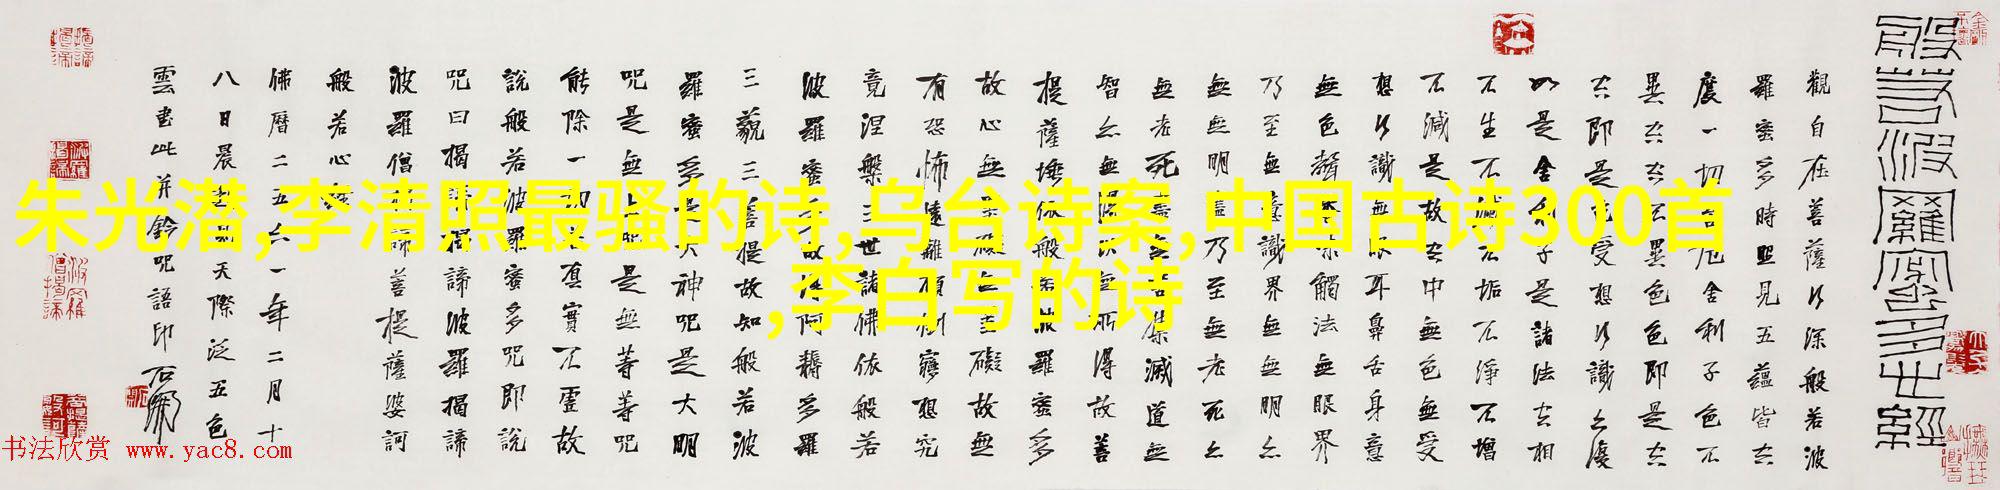 般若波羅蜜多心經
觀自在菩薩行深般若波
羅蜜多時照見五蘊皆空
度一切苦厄舍利子色不
異空空不異色色即是空
空即是色受想行識亦復
如是舍利子是諸法空相
不生不滅不垢不淨不增
不減是故空中無色無受
想行識無眼耳鼻舌身意
無色聲香味觸法無眼界
乃至無意識界無無明亦
無無明盡乃至無老死亦
無老死盡無苦集滅道無
智亦無得以無所得故菩
提薩埵依般若波羅蜜多
故心無罣礙無罣礙故無
有恐怖遠離顛倒夢想究
竟涅槃三世諸佛依般若
波羅蜜多故得阿耨多羅
三藐三菩提故知般若波
羅蜜多是大神咒是大明
咒是無上咒是無等等咒
能除一切苦真實不虛故
說般若波羅蜜多咒即說
咒曰揭諦揭諦波羅揭諦
波羅僧揭諦菩提薩婆訶
般若心經
佛曆二五六一年二月十
八日晨起見天際泛五色
雲書此并鈐咒語印
朱光潜,李清照最骚的诗,乌台诗案,中国古诗300首
,李白写的诗
书法欣赏 www.yac8.com